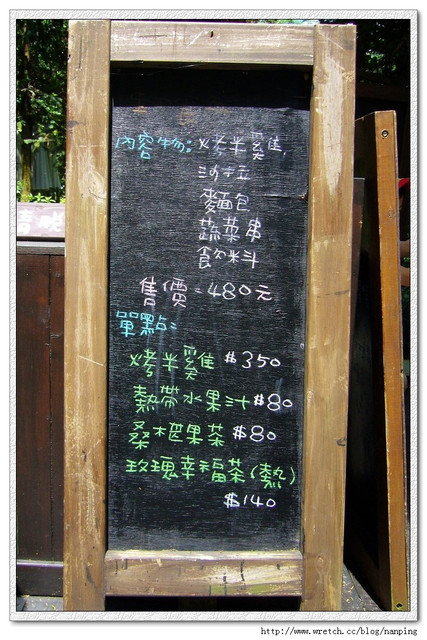 內容物:烤半雞,
沙拉
麵包
蔬菜串
飲料
售價=480元
單點=
烤半雞 $350
熱帶水果汁$80
桑椹果茶 $80
玫瑰幸福茶(熱)
$140
http://www.wretch.cc/blog/nanping